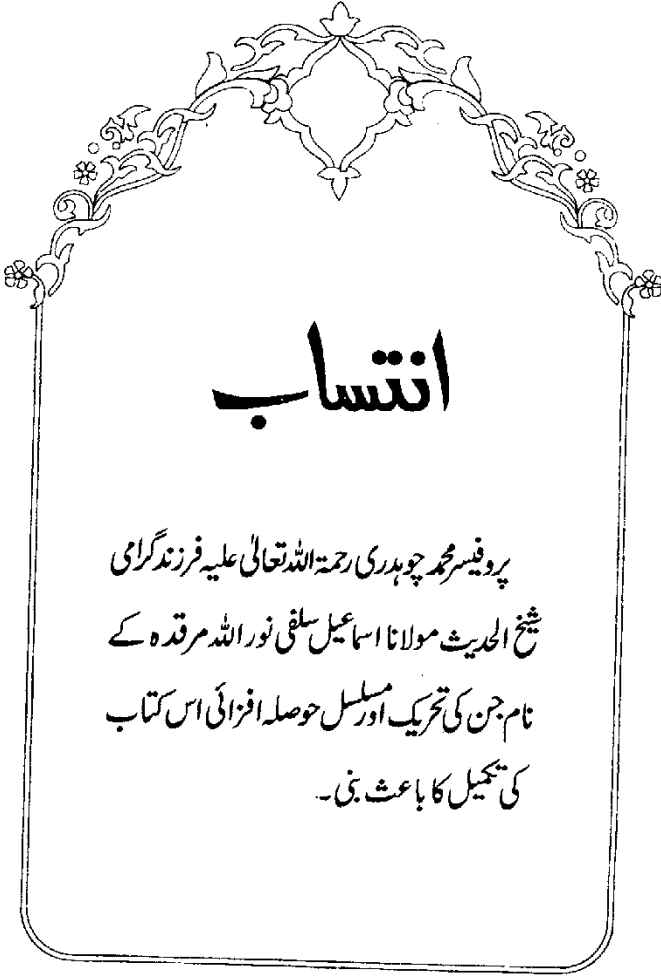 انتساب
پروفیسر محمد چوہدری رحمۃ اللہ تعالیٰ علیہ فرزند گرامی
شیخ الحدیث مولانا اسماعیل سلفی نور اللہ مرقدہ کے
نام جن کی تحریک اور مسلسل حوصلہ افزائی اس کتاب
کی تکمیل کا باعث بنی۔